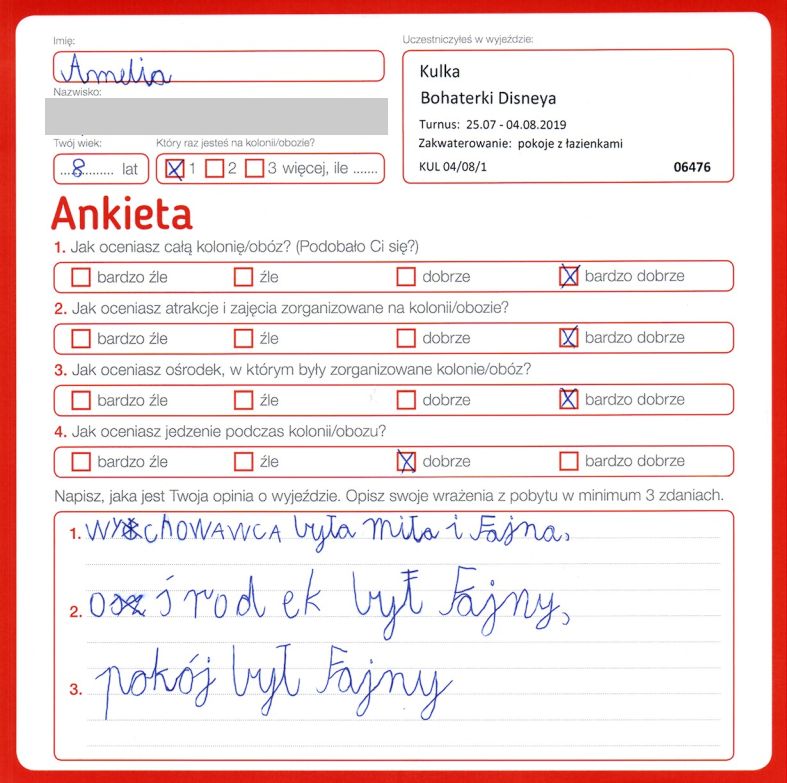 Imię:
Amelia
Nazwisko:
Twój wiek: Który raz jesteś na kolonii/obozie?
...8......... lat 1 2 3 więcej, ile .......
Uczestniczyłeś w wyjeździe:
Kulka
Bohaterki Disneya
Turnus: 25.07 - 04.08.2019
Zakwaterowanie: pokoje z łazienkami
KUL 04/08/1 06476
Ankieta
1. Jak oceniasz całą kolonię/obóz? (Podobało Ci się?)
bardzo źle źle dobrze bardzo dobrze
2. Jak oceniasz atrakcje i zajęcia zorganizowane na kolonii/obozie?
bardzo źle źle dobrze bardzo dobrze
3. Jak oceniasz ośrodek, w którym były zorganizowane kolonie/obóz?
bardzo źle źle dobrze bardzo dobrze
4. Jak oceniasz jedzenie podczas kolonii/obozu?
bardzo źle źle dobrze bardzo dobrze
Napisz, jaka jest Twoja opinia o wyjeździe. Opisz swoje wrażenia z pobytu w minimum 3 zdaniach.
1. WYchOWAWCA była miła i Fajna,
2. ośrodek był Fajny,
3. pokój był Fajny